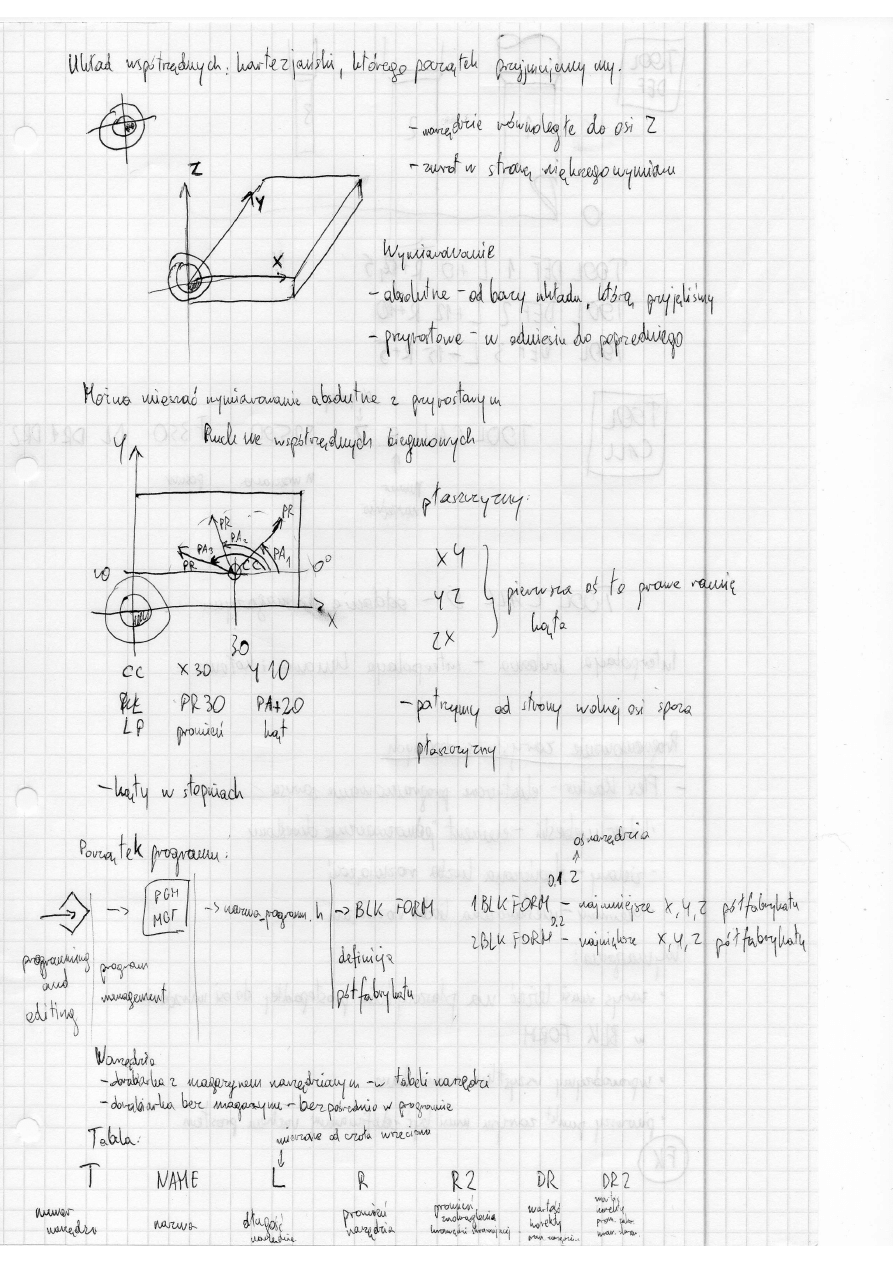 Układ współrzędnych: kartezjański, którego początek przyjmujemy my.
- narzędzie równoległe do osi Z
- zwrot w stronę większego wymiaru
Z
Y
X
Wymiarowanie
- absolutne - od bazy układu, którą przyjęliśmy
- przyrostowe - w odniesiu do poprzedniego
Można mieszać wymiarowanie absolutne z przyrostowym
Ruch we współrzędnych biegunowych
Y
PR
PR
PA2
PA3
PA1
PR
CC
0°
10
X
30
płaszczyzny:
XY
YZ
ZX
pierwsza oś to prawe ramię
kąta
CC X30 Y10
PR30 PA+20
LP promień kąt
- patrzymy od strony wolnej osi spoza
płaszczyzny
- kąty w stopniach
Początek programu:
oś narzędzia
-> PGM MGT -> nazwa_programu.h -> BLK FORM
programming and editing
program management
definicja
półfabrykatu
1 BLK FORM 0.1 Z - najmniejsze X, Y, Z półfabrykatu
2 BLK FORM 0.2 - największe X, Y, Z półfabrykatu
Narzędzia
- obrabiarka z magazynem narzędziowym - w tabeli narzędzi
- obrabiarka bez magazynu - bezpośrednio w programie
Tabela:
mierzone od czoła wrzeciona
T NAME L R R2 DR DR2
numer narzędzia
nazwa
długość
promień narzędzia
promień zaokrąglenia
wartość korekty